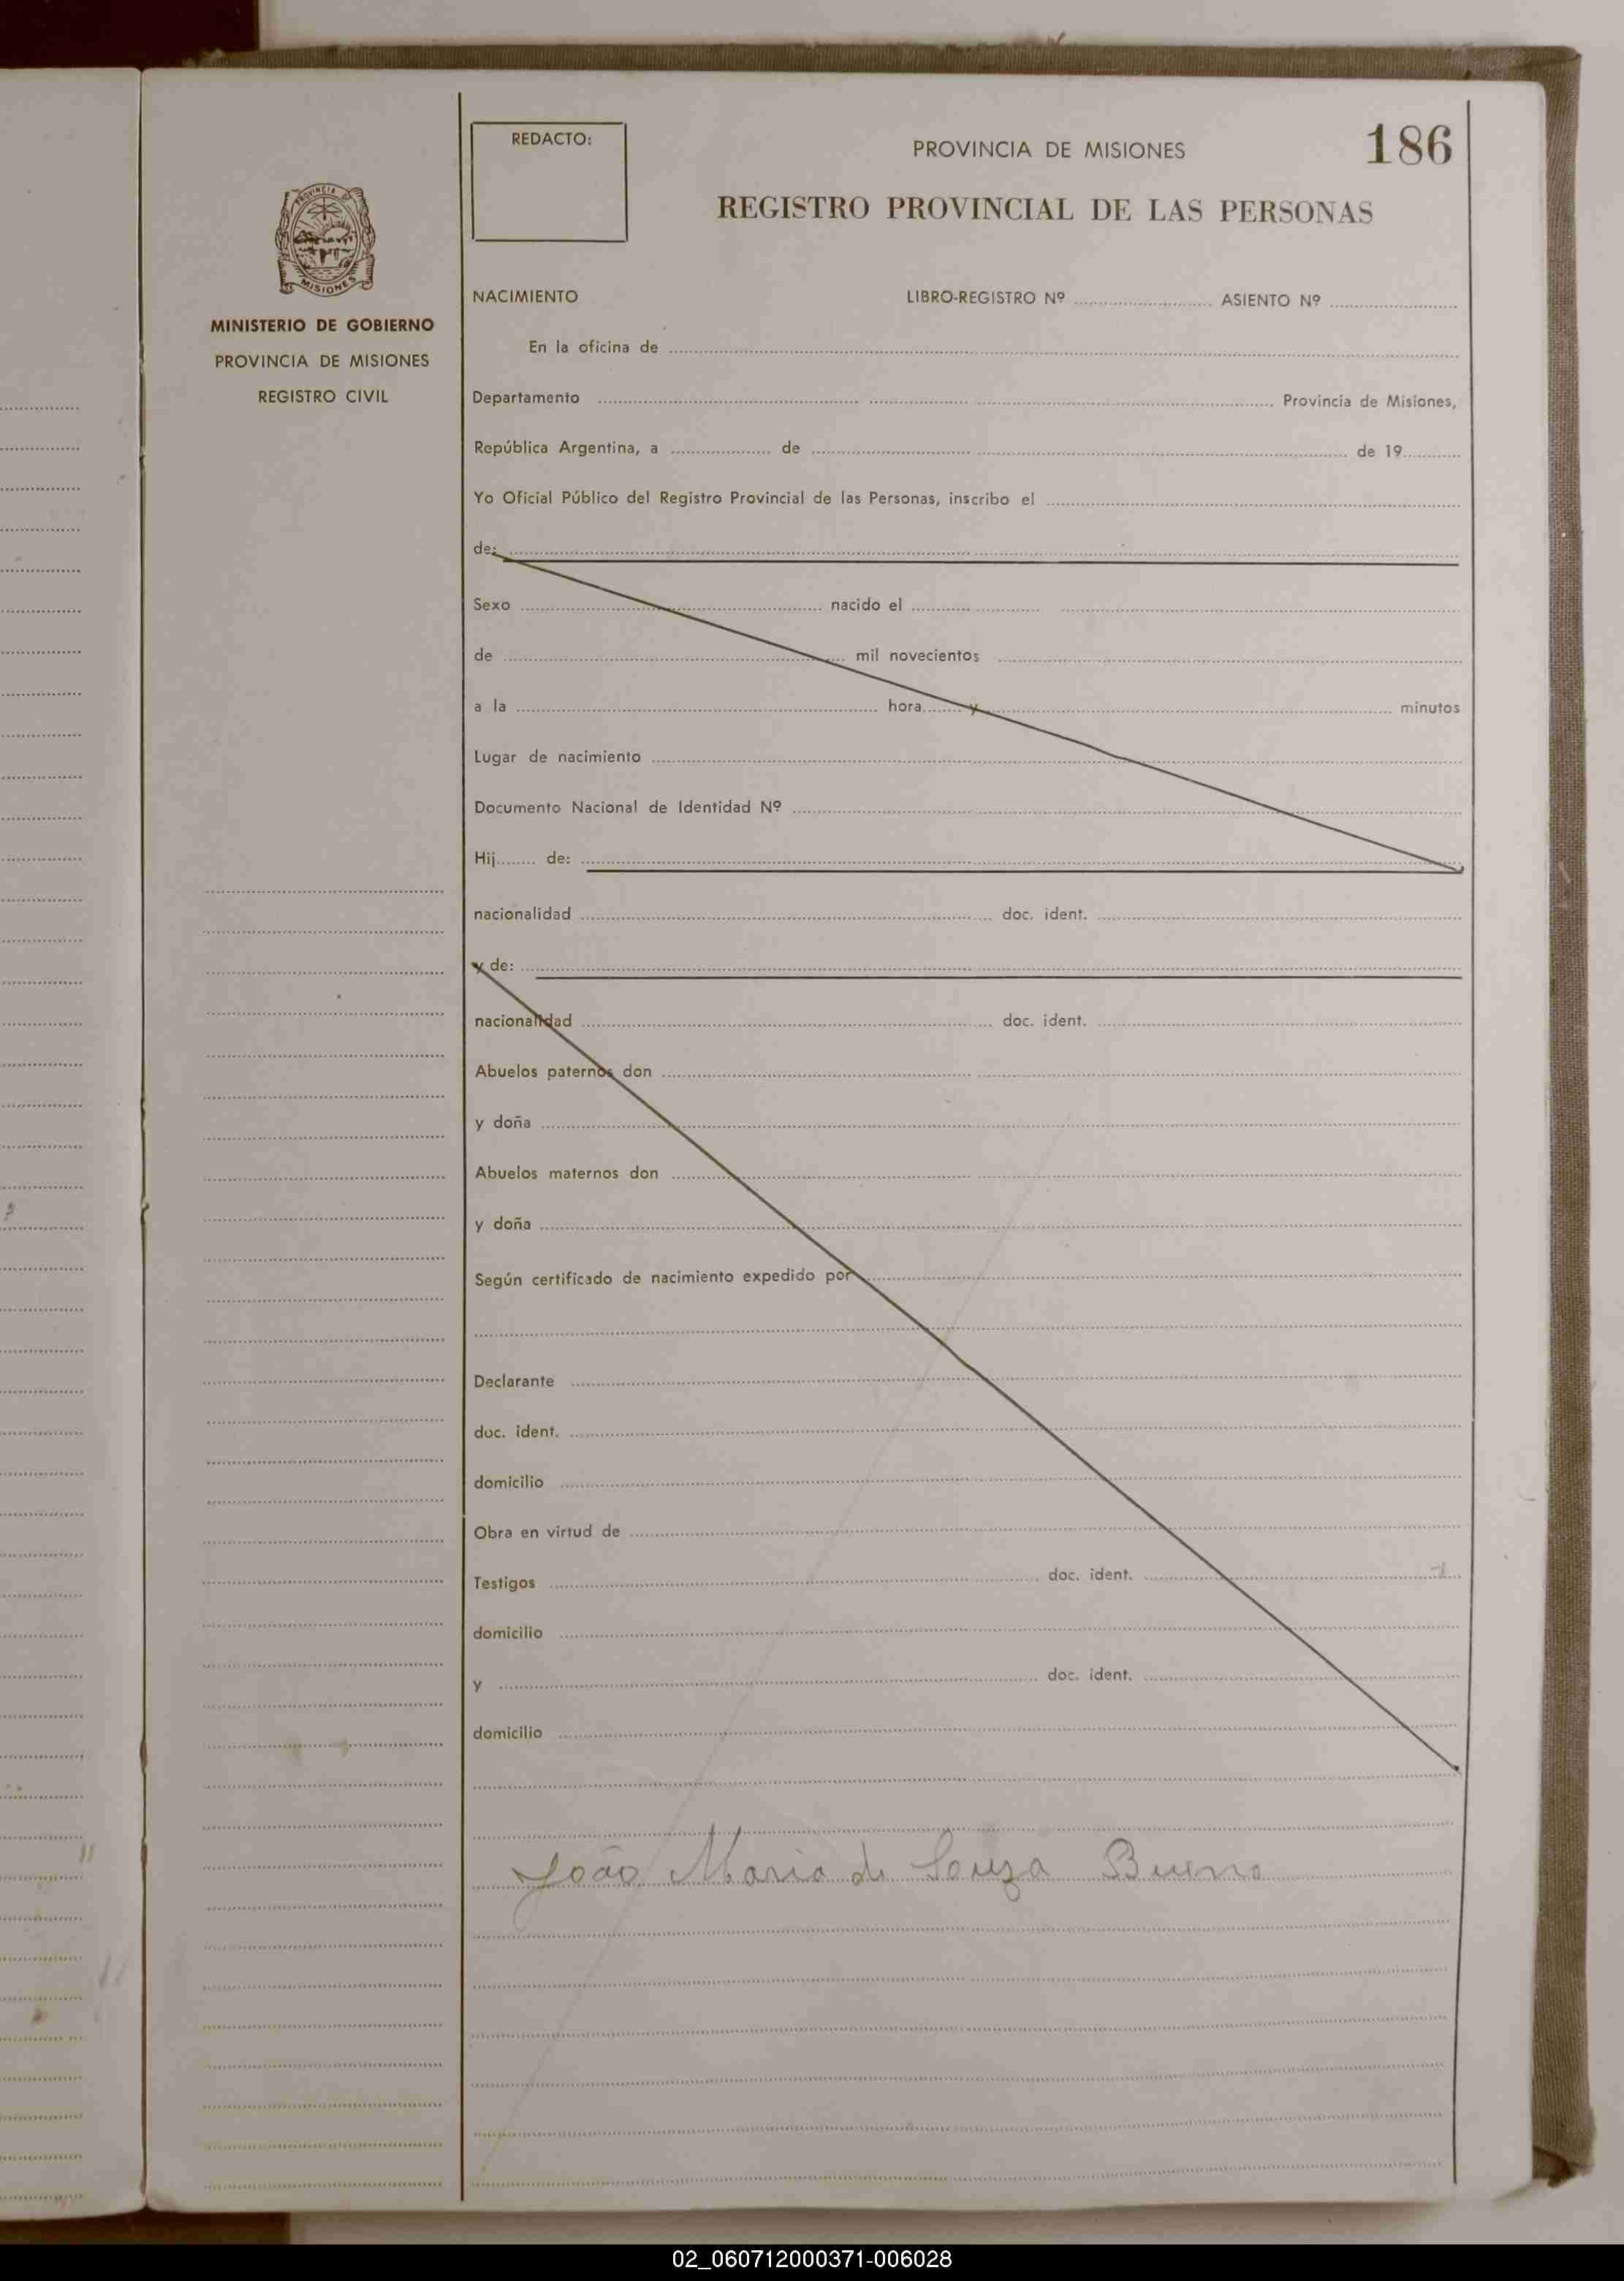 REDACTO:
PROVINCIA DE MISIONES
186
REGISTRO PROVINCIAL DE LAS PERSONAS
PROVINCIA DE
MISIONES
MINISTERIO DE GOBIERNO
PROVINCIA DE MISIONES
REGISTRO CIVIL
NACIMIENTO LIBRO-REGISTRO Nº ASIENTO Nº
En la oficina de
Departamento Provincia de Misiones,
República Argentina, a de de 19
Yo Oficial Público del Registro Provincial de las Personas, inscribo el
de:
Sexo nacido el
de mil novecientos
a la hora y minutos
Lugar de nacimiento
Documento Nacional de Identidad Nº
Hij de:
nacionalidad doc. ident.
y de:
nacionalidad doc. ident.
Abuelos paternos don
y doña
Abuelos maternos don
y doña
Según certificado de nacimiento expedido por
Declarante
doc. ident.
domicilio
Obra en virtud de
Testigos doc. ident.
domicilio
y doc. ident.
domicilio
João Maria de Souza Bueno
02_060712000371-006028